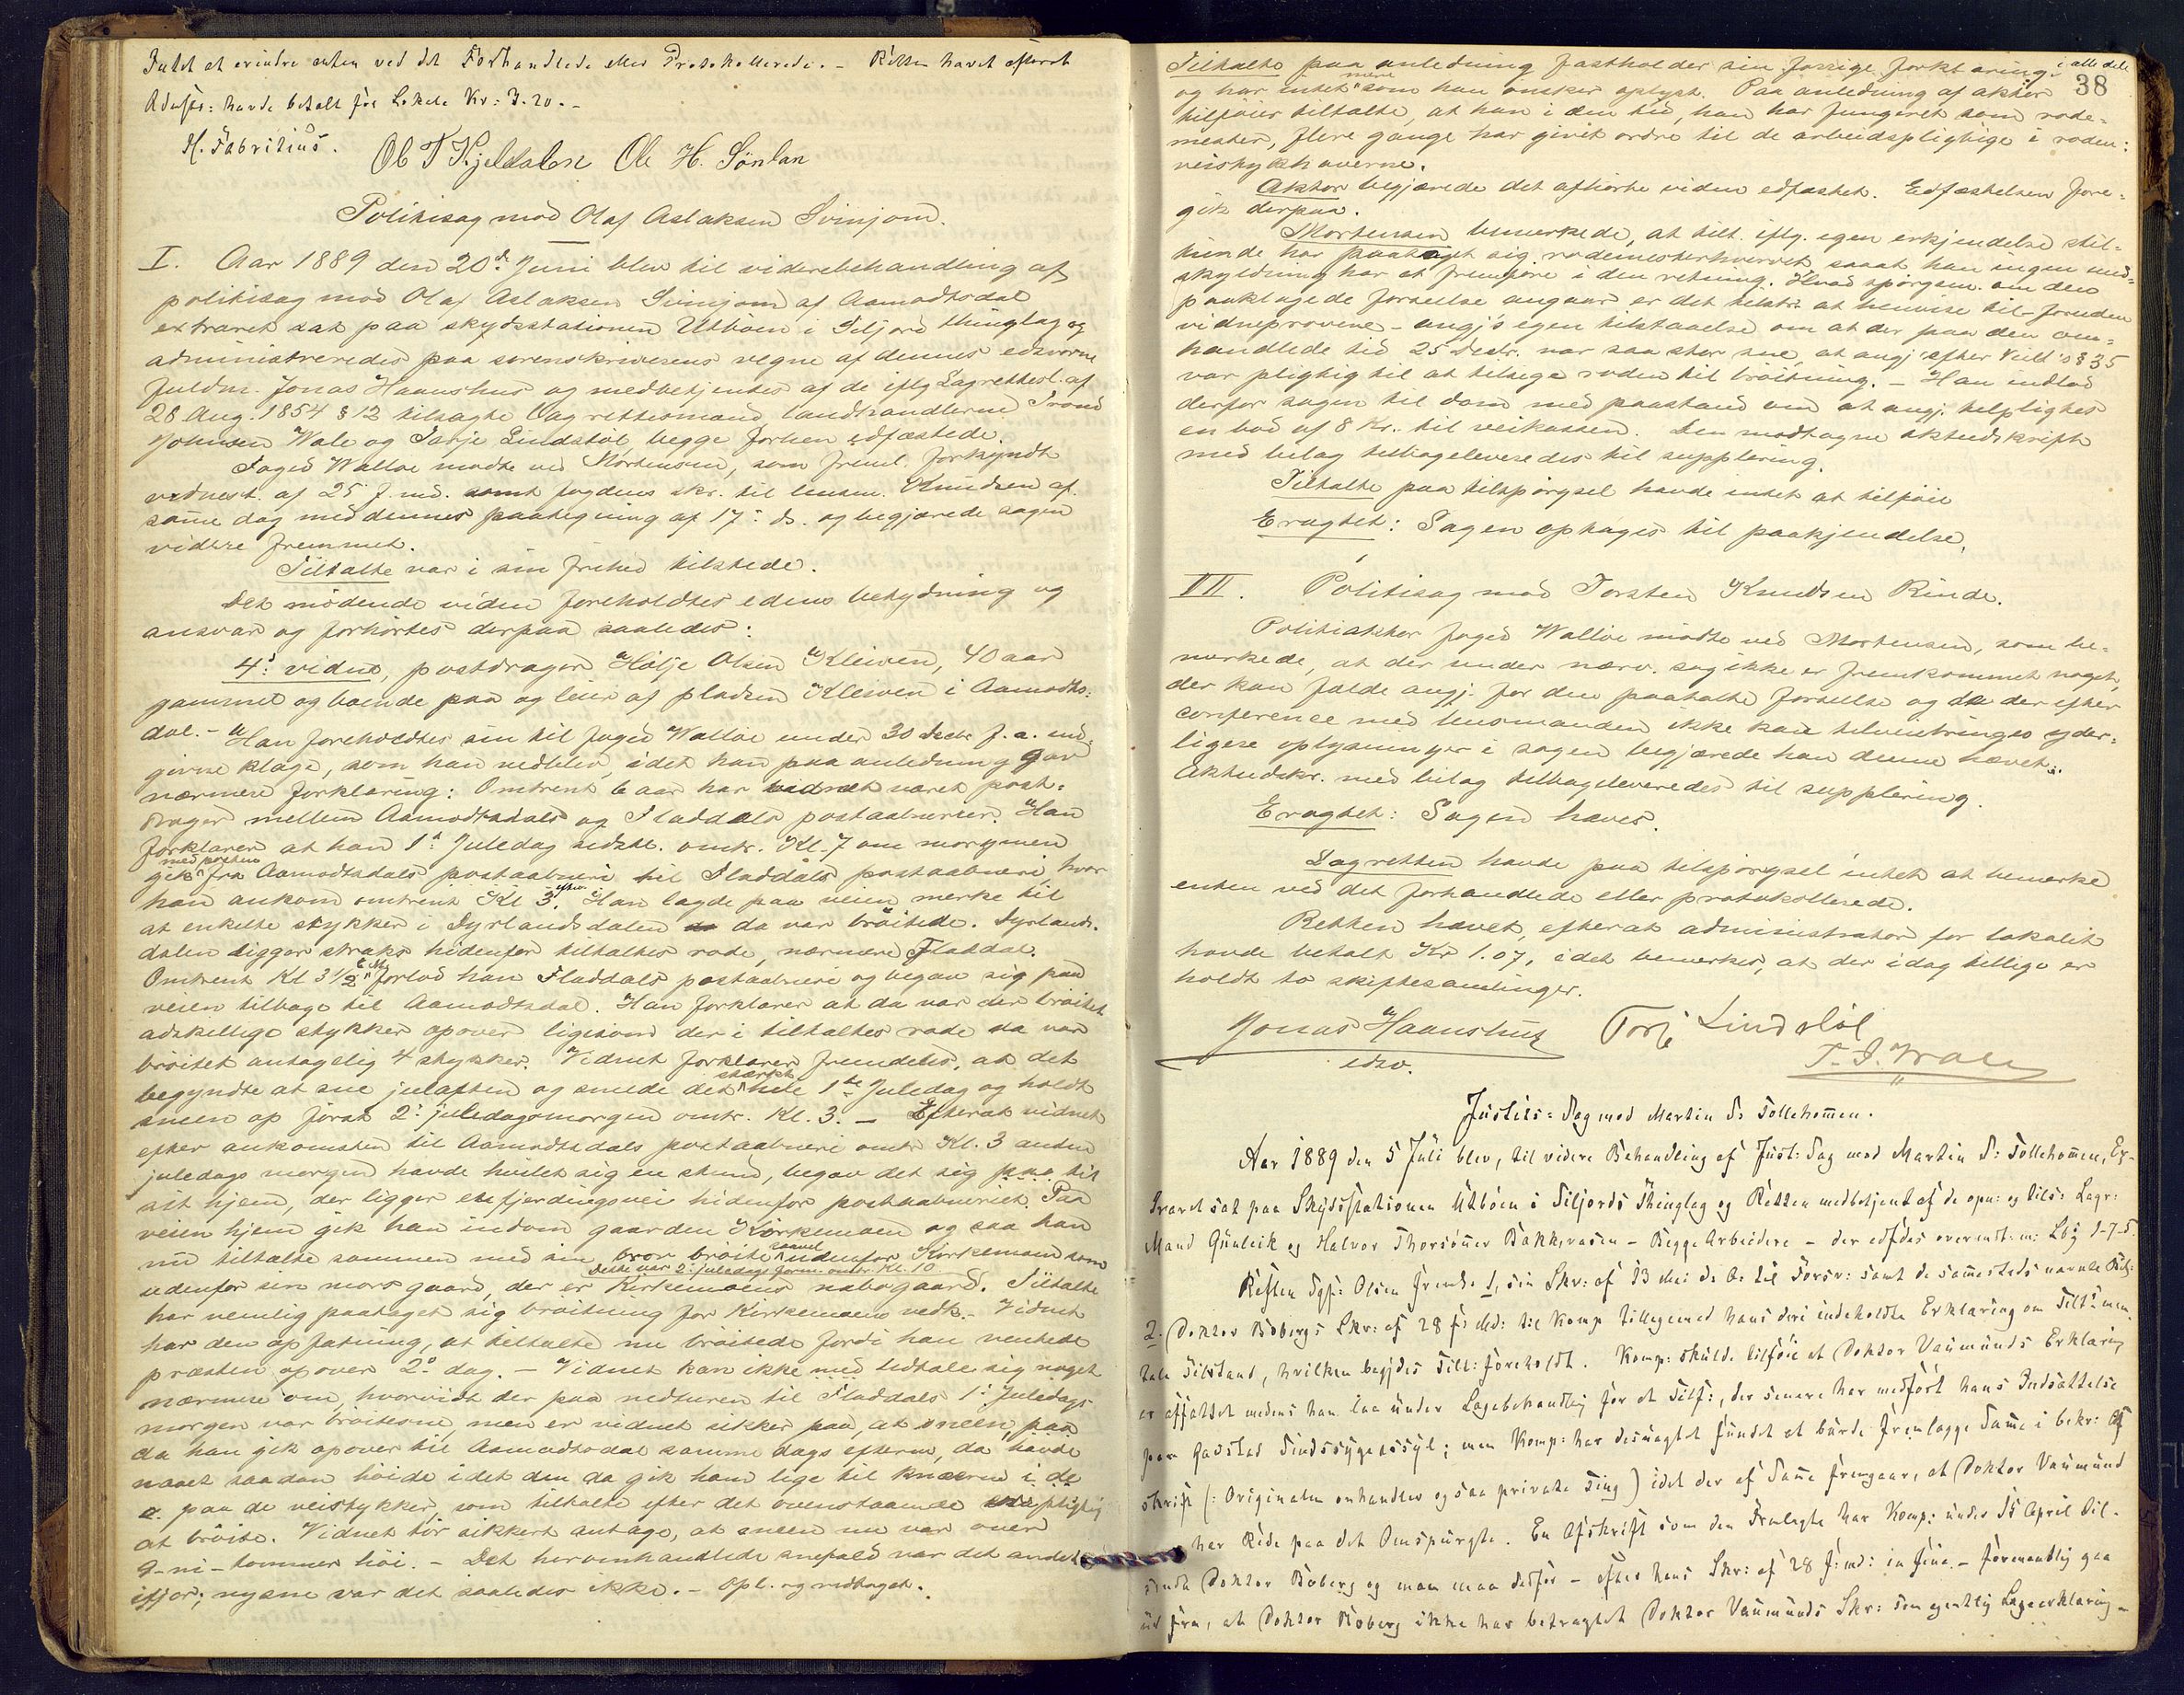 Intet at erindre enten ved det Forhandlede eller Protokollerede. – Retten hævet efterat
Admstr: havde betalt for Lokale Kr: 3.20. –
H. Fabritius. Ol T Kjeldalen Ole H. Sønlan
Politisag mod Olaf Aslaksen Svinjom.
I. Aar 1889 den 20de Juni blev til viderebehandling af
politisag mod Olaf Aslaksen Svinjom af Aamodtsdal
extraret sat paa skydsstationen Utbøen i Siljord thinglag og
administreredes paa sorenskriverens vegne af dennes edsvorne
fuldm. Jonas Haanshus og medbetjentes af de iflg Lagrettesl. af
28 Aug. 1854 § 12 tilsagte Lagrettesmænd landhandlerne Trond
Johnsen Wale og Tarje Lindstøl begge forhen edfæstede.
Foged Walløe mødte ved Mortensen, som freml. forkyndt
vidnest. af 25 f. md. samt fogdens skr. til lensm. Knudsen af
samme dag med dennes paategning af 17: ds. og begjærede sagen
videre fremmet.
Tiltalte var i sin frihed tilstede.
Det mødende vidne foreholdtes edens betydning og
ansvar og forhørtes derpaa saaledes:
4: vidne, postdrager Hølje Olsen Kleiven, 40 aar
gammel og boende paa og leier af pladsen Kleiven i Aamodts-
dal. – Han foreholdtes sin til foged Walløe under 30 Decbr f. a. ind-
givne klage, som han vedblev, idet han paa anledning gav
nærmere forklaring: Omtrent 6 aar har vidnet været post-
drager mellem Aamodtsdals og Fladdals postaabnerier. Han
forklarer at han 1ste Juledag sidstl. omtr. Kl. 7 om morgenen
gik med posten fra Aamodtsdals postaabneri til Fladdals postaabneri, hvor
han ankom omtrent Kl 3 efterm. Han lagde paa veien merke til
at enkelte stykker i Dyrlandsdalen da var brøitede. Dyrlands-
dalen ligger straks hidenfor tiltaltes rode, nærmere Flatdal.
Omtrent Kl 3½ E.M. forlod han Fladdals postaabneri og begav sig paa
veien tilbage til Aamodtsdal. Han forklarer at da var der brøitet
adskillige stykker opover ligesom der i tiltaltes rode da var
brøitet antagelig 4 stykker. Vidnet forklarer fremdeles, at det
begyndte at sne julaften og snede det stærkt hele 1ste Juledag og holdt
sneen op først 2: juledagsmorgen omtr. Kl. 3. – Efterat vidnet
efter ankomsten til Aamodtsdals postaabneri omtr Kl. 3 anden
juledags morgen havde hvilet sig en stund, begav det sig paa til
sit hjem, der ligger en fjerdingsvei hidenfor postaabneriet. Paa
veien hjem gik han indom gaarden Kirkemoen og saa han
nu tiltalte sammen med sin bror brøite saavel udenfor Kirkemoen som
Dette var 2: juledags form. omtr. Kl. 10
udenfor sin mors gaard, der er Kirkemoens nabogaard. Tiltalte
har nemlig paataget sig brøitning for Kirkemoens vedk. – Vidnet
har den opfatning, at tiltalte nu brøitede fordi han ventede
præsten opover 2: dag. – Vidnet kan ikke med udtale sig noget
nærmere om, hvorvidt der paa nedturen til Fladdals 1: Juledags
morgen var brøitesne, men er vidnet sikker paa, at sneen, paa
da han gik opover til Aamodtsdal samme dags efterm, da havde
naaet saadan høide idet den da gik ham lige til knæerne i de
a. paa de veistykker, som tiltalte efter det ovenstaaende er pligtig
at brøite. Vidnet tør sikkert antage, at sneen nu var over
9-ni-tommer høi. – Det heromhandlede snefald var det andet
ifjor; nysne var det saaledes ikke. – Opl. og vedtaget.
38
Tiltalte paa anledning fastholder sin forrige forklaring i alle dele
og har intet mere som han ønsker oplyst. Paa anledning af aktor
tilføier tiltalte, at han i den tid, han har fungeret som rode-
mester, flere gange har givet ordre til de arbeidspligtige i roden:
veistykkhaverne.
Aktor begjærede det afhørte vidne edfæstet. Edfæstelsen fore-
gik derpaa.
Mortensen bemerkede, at tilt. iflg. egen erkjendelse stil-
tiende har paataget sig rodemesterhvervet, saaat han ingen und-
skyldning har at fremføre i den retning. Hvad spørgsm. om den
paaklagede forseelse angaar er det tilstr. at henvise til – foruden
vidneprovene – angj's egen tilstaaelse om at der paa den om-
handlede tid 25 Decbr. var saa stor sne, at angj. efter Veil's § 35
var pligtig til at tilsige roden til brøitning. – Han indlod
derfor sagen til dom med paastand om at angj. tilpligtes
en bod af 8 Kr. til veikassen. Den modtagne aktudskrift
med bilag tilbageleveredes til supplering.
Tiltalte paa tilspørgsel havde intet at tilføie
Eragtet: Sagen optages til paakjendelse.
III. Politisag mod Torsten Knudsen Rinde.
Politiaktor foged Walløe mødte ved Mortensen, som be-
merkede, at der under nærv. sag ikke er fremkommet noget,
der kan fælde angj. for den paatalte forseelse og da der efter
conference med lensmanden ikke kan tilveiebringes yder-
ligere oplysninger i sagen begjærede han denne hævet.
Aktudskr. med bilag tilbageleveredes til supplering.
Eragtet: Sagen hæves.
Lagretten havde paa tilspørgsel intet at bemerke
enten ved det forhandlede eller protokollerede.
Retten hævet, efterat administrator for lokalet
havde betalt Kr 1.07, idet bemerkes, at der idag tillige er
holdt to skiftesamlinger.
Jonas Haanshus Torje Lindstøl
edsv. T. J. Wale
Justits-Sag mod Martin S: Tollehommen.
Aar 1889 den 5 Juli blev, til videre Behandling af Just: Sag mod Martin S: Tollehommen, Ex-
traret sat paa Skydsstationen Utbøen i Siljords Thinglag og Retten medbetjent af de opn: og tils: Lagr:
Mænd Gunleik og Halvor Thorsønner Bakkevasen – Begge Arbeidere – der edfdes overenst. m: Lbg 1-7-5.
Resten Sgf: Olsen fremls 1, sin Skr: af 13 Mai ds A: til Forsv: samt de sammesteds nævnte Bil:
2. Doktor Boberg's Skr: af 28 f: Md: til Komp tilligemed hans deri indeholdte Erklæring om Tilts men-
tale Tilstand, hvilken begjdes Tilt: foreholdt. Komp: skulde tilføie at Doktor Vaumunds Erklæring
er affattet medens han laa under Lægebehandling for et Tilf:, der senere har medført hans Indsættelse
paa Gaustad Sindssygeassyl; men Komp: har desuagtet fundet at burde fremlægge Samme i bekr: Af
skrift (: Originalen omhandler ogsaa private Ting) idet der af Samme fremgaar, at Doktor Vaumund
har Rede paa det Omspurgte. En Afskrift som den Fremlagte har Komp: under 15 April til-
sendt Doktor Boberg og man maa derfor – efter hans Skr: af 28 f: md: in fine – formentlig gaa
ud fra, at Doktor Boberg ikke har betragtet Doktor Vaumunds Skr: som egentlig Lægeerklæring –